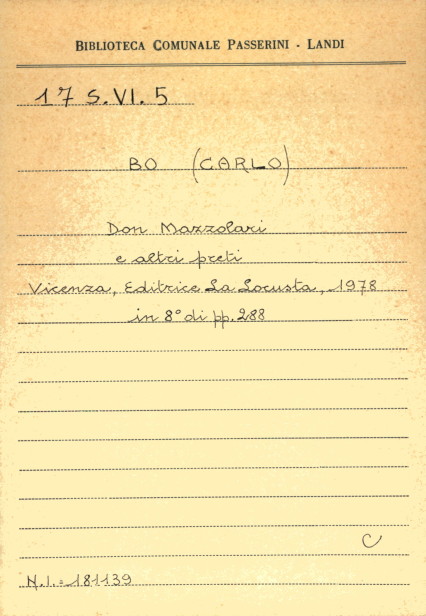 BIBLIOTECA COMUNALE PASSERINI - LANDI
17 S.VI.5
BO (CARLO)
Don Mazzolari
e altri preti
Vicenza, Editrice La Locusta, 1978
in 8° di pp. 288
C
N.I.=181139